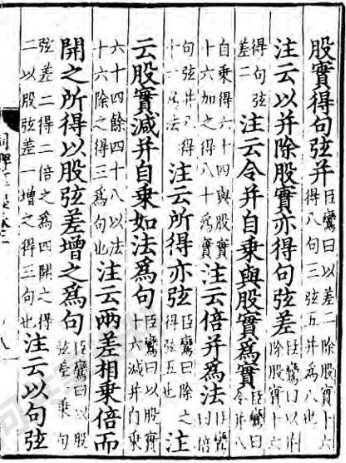 股實得句弦并臣鸞曰以差二除股實十六得八句三弦五并為八也
注云以并除股實亦得句弦差臣鸞曰以并除股實十六
得句弦差二注云令并自乘與股實為實臣鸞曰令并八
自乘得六十四與股實十六加之得八十為實注云倍并為法臣鸞曰倍
句弦并八得十六為法注云所得亦弦臣鸞曰除之得弦五也注
云股實減并自乘如法為句臣鸞曰以股實十六減并自乘
六十四餘四十八以法十六除之得三為句也注云兩差相乘倍而
開之所得以股弦差增之為句臣鸞曰以股弦差乘句
弦差二得二倍之為四開之得二以股弦差一增之得三句也注云以句弦